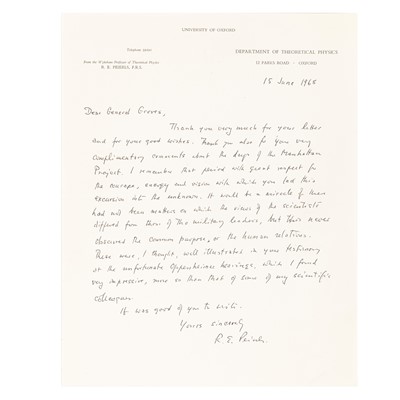 UNIVERSITY OF OXFORD
DEPARTMENT OF THEORETICAL PHYSICS
From the Wykeham Professor of Theoretical Physics
12 PARKS ROAD · OXFORD
R. E. PEIERLS, F.R.S.
15 June 1968
Dear General Groves,
Thank you very much for your letter
and for your good wishes. Thank you also for your very
complimentary comments about the days of the Manhattan
Project. I remember that period with great respect for
the courage, energy and vision with which you led this
excursion into the unknown. It would be a miracle if there
had not been matters on which the views of the scientists
differed from those of the military leaders, but this never
obscured the common purpose, or the human relations.
These were, I thought, well illustrated in your testimony
at the unfortunate Oppenheimer hearings, which I found
very impressive, more so than that of some of my scientific
colleagues.
It was good of you to write.
Yours sincerely
R. E. Peierls